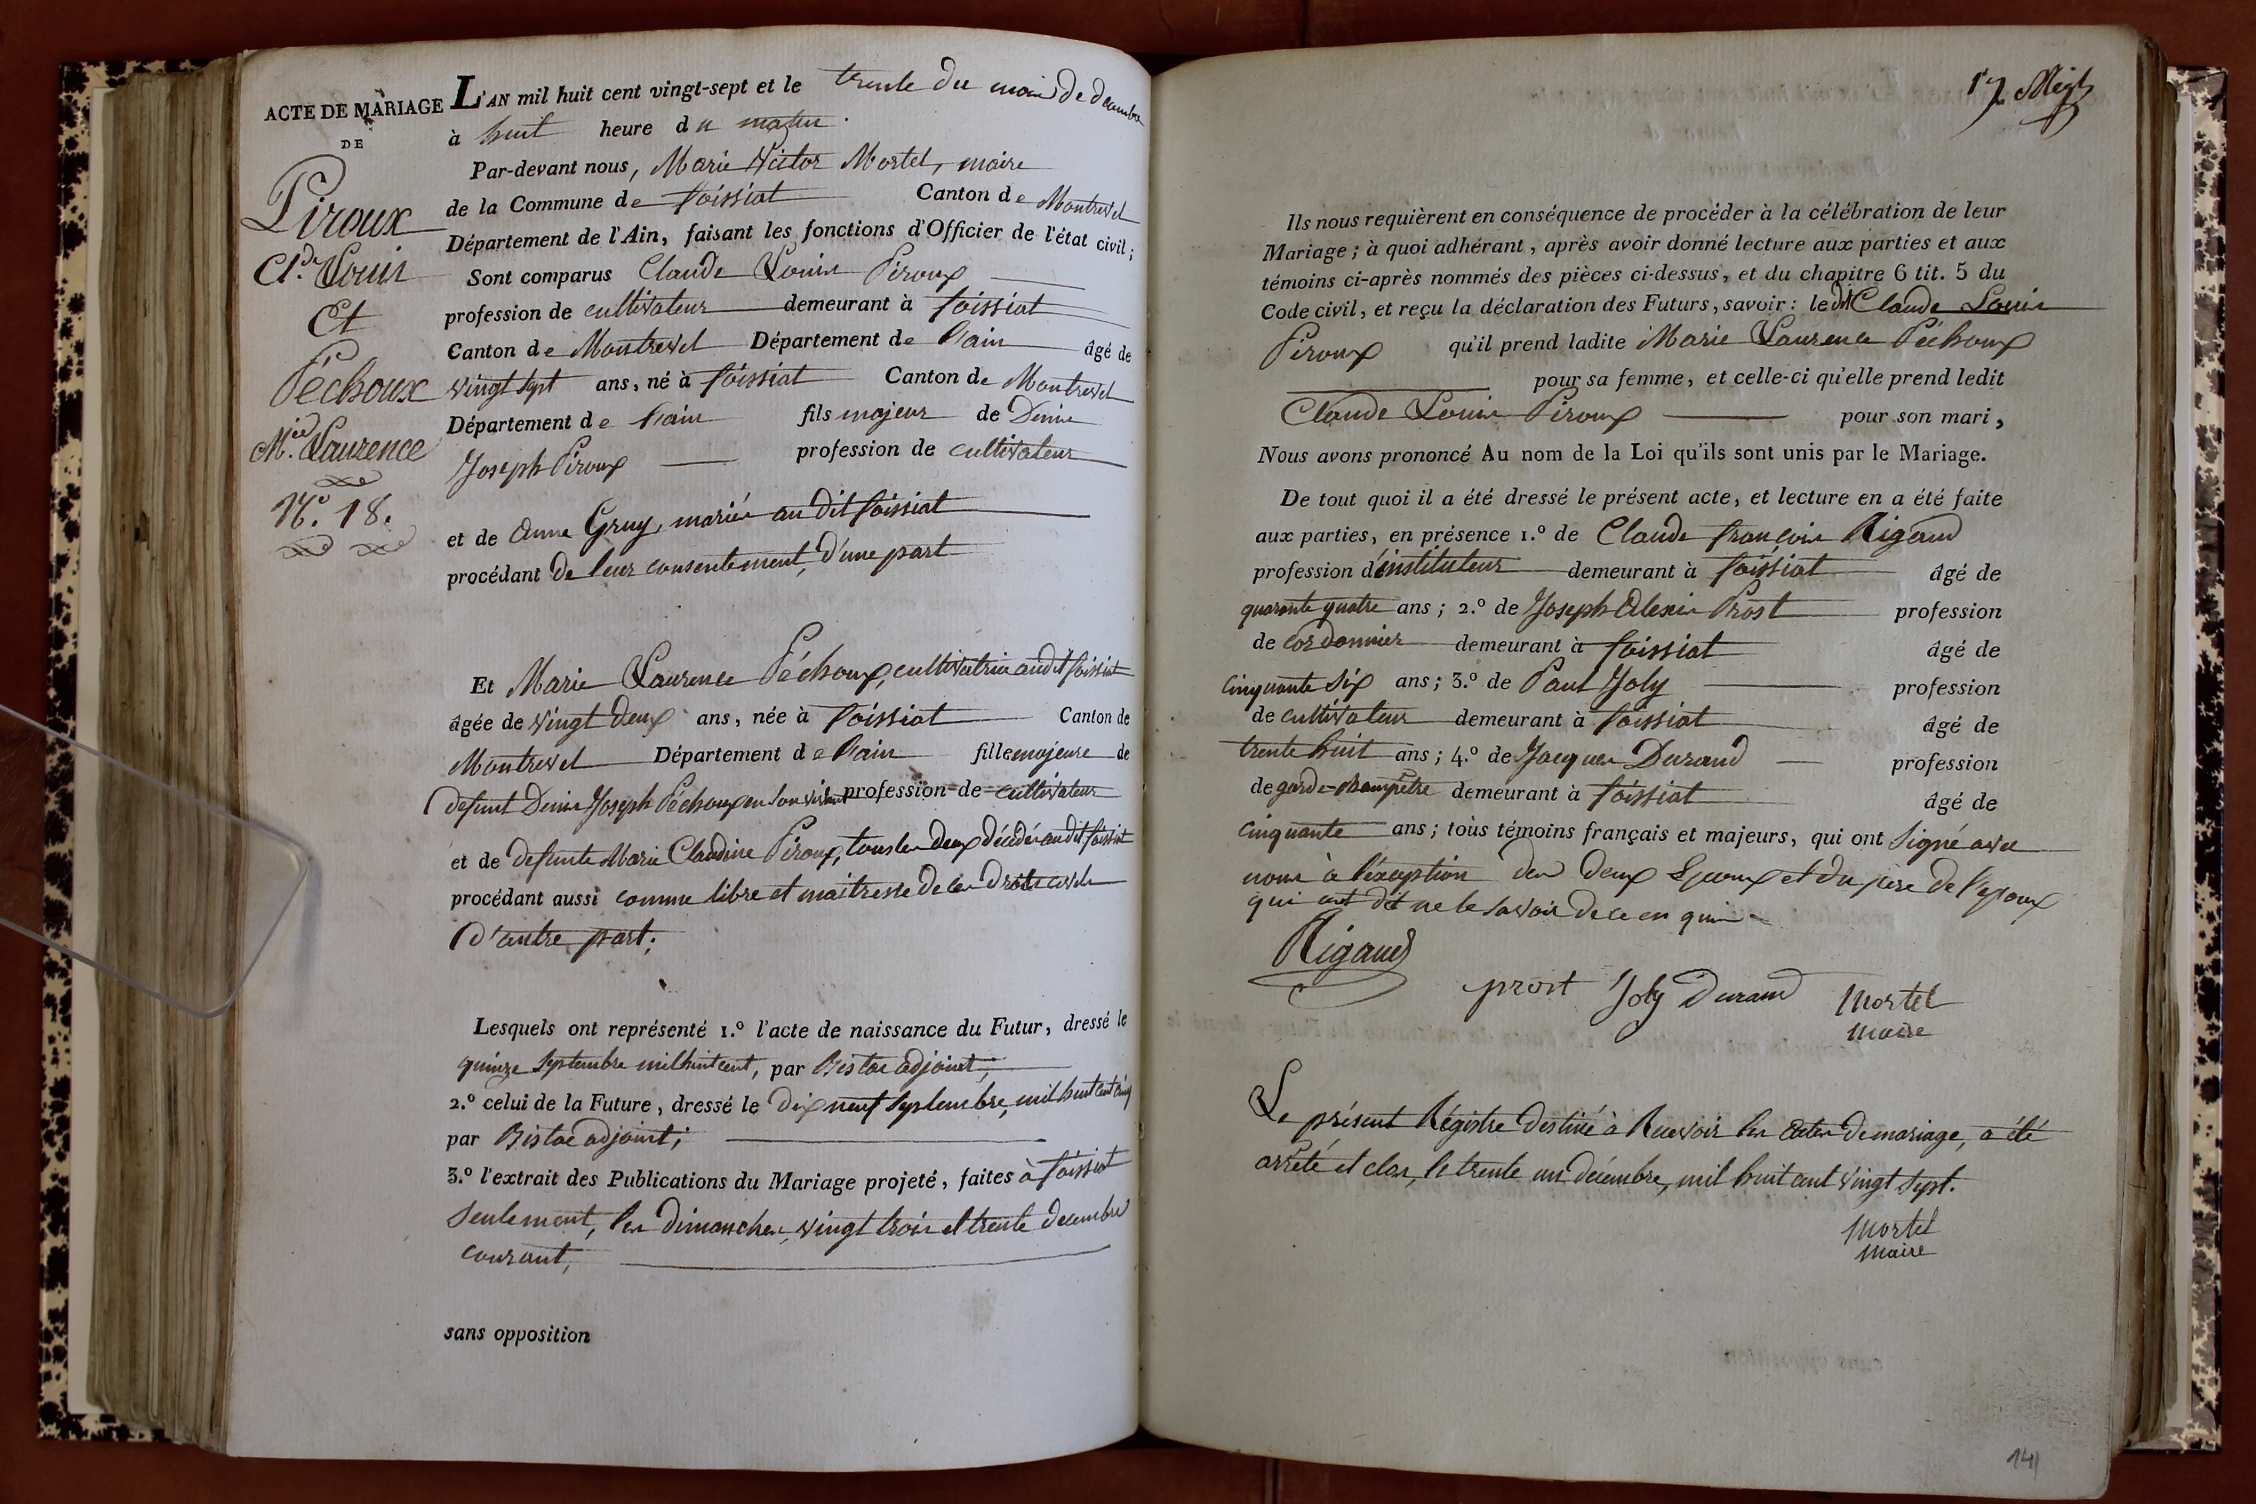 ACTE DE MARIAGE
DE
Piroux
Cl.de Louis
Et
Péchoux
M.ie Laurence
N.o 18.
L'AN mil huit cent vingt-sept et le trente du mois de décembre
à huit heure du matin.
Par-devant nous, Marie Victor Mortel, maire
de la Commune de Foissiat Canton de Montrevel
Département de l'Ain, faisant les fonctions d'Officier de l'état civil;
Sont comparus Claude Louis Piroux
profession de cultivateur demeurant à Foissiat
Canton de Montrevel Département de l'ain âgé de
vingt sept ans, né à Foissiat Canton de Montrevel
Département de l'ain fils majeur de Denis
Joseph Piroux profession de cultivateur
et de anne Gruy, mariés au dit Foissiat
procédant de leur consentement, d'une part
Et Marie Laurence Péchoux, cultivatrice audit Foissiat
âgée de vingt deux ans, née à Foissiat Canton de
Montrevel Département de l'ain fille majeure de
defunt Denis Joseph Péchoux en son vivant profession de cultivateur
et de defunte Marie Claudine Piroux, tous les deux décédés audit Foissiat
procédant aussi comme libre et maitresse de ses droits civils
d'autre part;
Lesquels ont représenté 1.º l'acte de naissance du Futur, dressé le
quinze septembre mil huit cent, par adjoint;
2.º celui de la Future, dressé le dix neuf septembre, mil huit cent cinq
par adjoint;
3.º l'extrait des Publications du Mariage projeté, faites à Foissiat
seulement, les dimanches, vingt trois et trente decembre
courant,
sans opposition
17
Ils nous requièrent en conséquence de procéder à la célébration de leur
Mariage; à quoi adhérant, après avoir donné lecture aux parties et aux
témoins ci-après nommés des pièces ci-dessus, et du chapitre 6 tit. 5 du
Code civil, et reçu la déclaration des Futurs, savoir: le dt Claude Louis
Piroux qu'il prend ladite Marie Laurence Péchoux
pour sa femme, et celle-ci qu'elle prend ledit
Claude Louis Piroux pour son mari,
Nous avons prononcé Au nom de la Loi qu'ils sont unis par le Mariage.
De tout quoi il a été dressé le présent acte, et lecture en a été faite
aux parties, en présence 1.º de Claude françois Rigaud
profession d'instituteur demeurant à Foissiat âgé de
quarante quatre ans; 2.º de Joseph Alexis Prost profession
de cordonnier demeurant à Foissiat âgé de
cinquante six ans; 3.º de Paul Joly profession
de cultivateur demeurant à Foissiat âgé de
trente huit ans; 4.º de Jacques Durand profession
de garde-champêtre demeurant à Foissiat âgé de
cinquante ans; tous témoins français et majeurs, qui ont signé avec
nous à l'éxception des deux Epoux et du pere de l'epoux
qui ont dit ne le savoir de ce en quis
Rigaud
prost Joly Durand Mortel
Maire
Le présent Régistre destiné à Recevoir les actes de mariage, a été
arrêté et clos, le trente un décembre, mil huit cent vingt sept.
Mortel
Maire
141